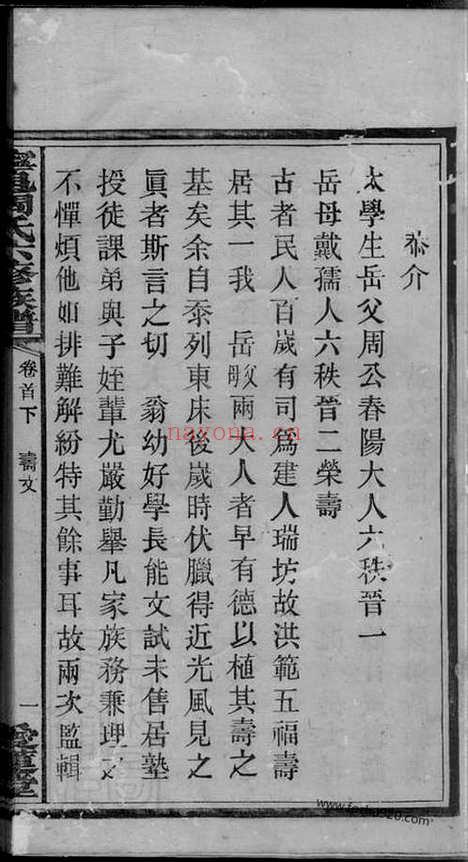 恭介
太學生岳父周公春陽大人六秩晉一
岳母戴孺人六秩晉二榮壽
古者民人百歲有司爲建人瑞坊故洪範五福壽
居其一我 岳父母兩大人者早有德以植其壽之
基矣余自忝列東床後歲時伏臘得近光風見之
眞者斯言之切 翁幼好學長能文試未售居塾
授徒課弟與子姪輩尤嚴勤舉凡家族務兼理之
不憚煩他如排難解紛特其餘事耳故兩次監輯
周氏六修族譜
卷首下
壽文
一
愛蓮堂
nayona.cn
www.fedia920.com